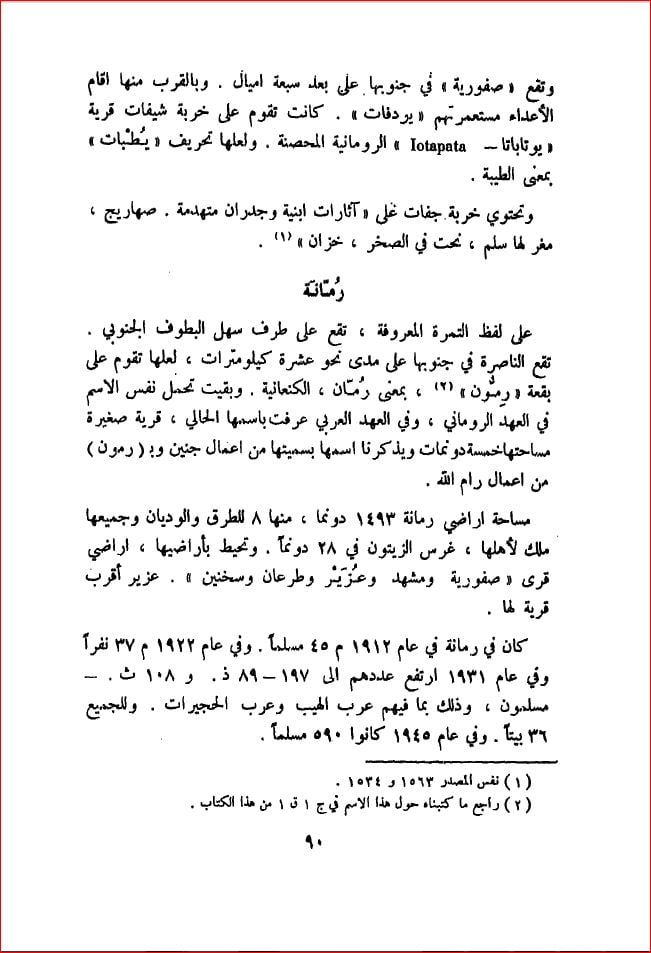 وتقع « صفورية » في جنوبها على بعد سبعة اميال . وبالقرب منها اقام
الأعداء مستعمرتهم « يردفات » . كانت تقوم على خربة شيفات قرية
« يوتاباتا – Iotapata » الرومانية المحصنة . ولعلها تحريف « يُطْبات »
بمعنى الطيبة .
وتحتوي خربة جفات على « آثارات ابنية وجدران متهدمة . صهاريج ،
مغر لها سلم ، نحت في الصخر ، خزان » (١) .
رُمّانَة
على لفظ الثمرة المعروفة ، تقع على طرف سهل البطوف الجنوبي .
تقع الناصرة في جنوبها على مدى نحو عشرة كيلومترات ، لعلها تقوم على
بقعة « رِمُّون » (٢) ، بمعنى رُمّان ، الكنعانية . وبقيت تحمل نفس الاسم
في العهد الروماني ، وفي العهد العربي عرفت باسمها الحالي ، قرية صغيرة
مساحتها خمسة دونمات ويذكرنا اسمها بسميتها من اعمال جنين وبـ ( رمون )
من اعمال رام الله .
مساحة اراضي رمانة ١٤٩٣ دونما ، منها ٨ للطرق والوديان وجميعها
ملك لأهلها ، غرس الزيتون في ٢٨ دونماً . وتحيط بأراضيها ، اراضي
قرى « صفورية ومشهد وعُزَيْر وطرعان وسخنين » . عزير أقرب
قرية لها .
كان في رمانة في عام ١٩١٢ م ٤٥ مسلماً . وفي عام ١٩٢٢ م ٣٧ نفراً
وفي عام ١٩٣١ ارتفع عددهم الى ١٩٧ – ٨٩ ذ. و ١٠٨ ث . –
مسلمون ، وذلك بما فيهم عرب الهيب وعرب الحجيرات . وللجميع
٣٦ بيتاً . وفي عام ١٩٤٥ كانوا ٥٩٠ مسلماً .
( ١ ) نفس المصدر ١٥٦٣ و ١٥٣٤ .
( ٢ ) راجع ما كتبناه حول هذا الاسم في ج ١ ق ١ من هذا الكتاب .
٩٠